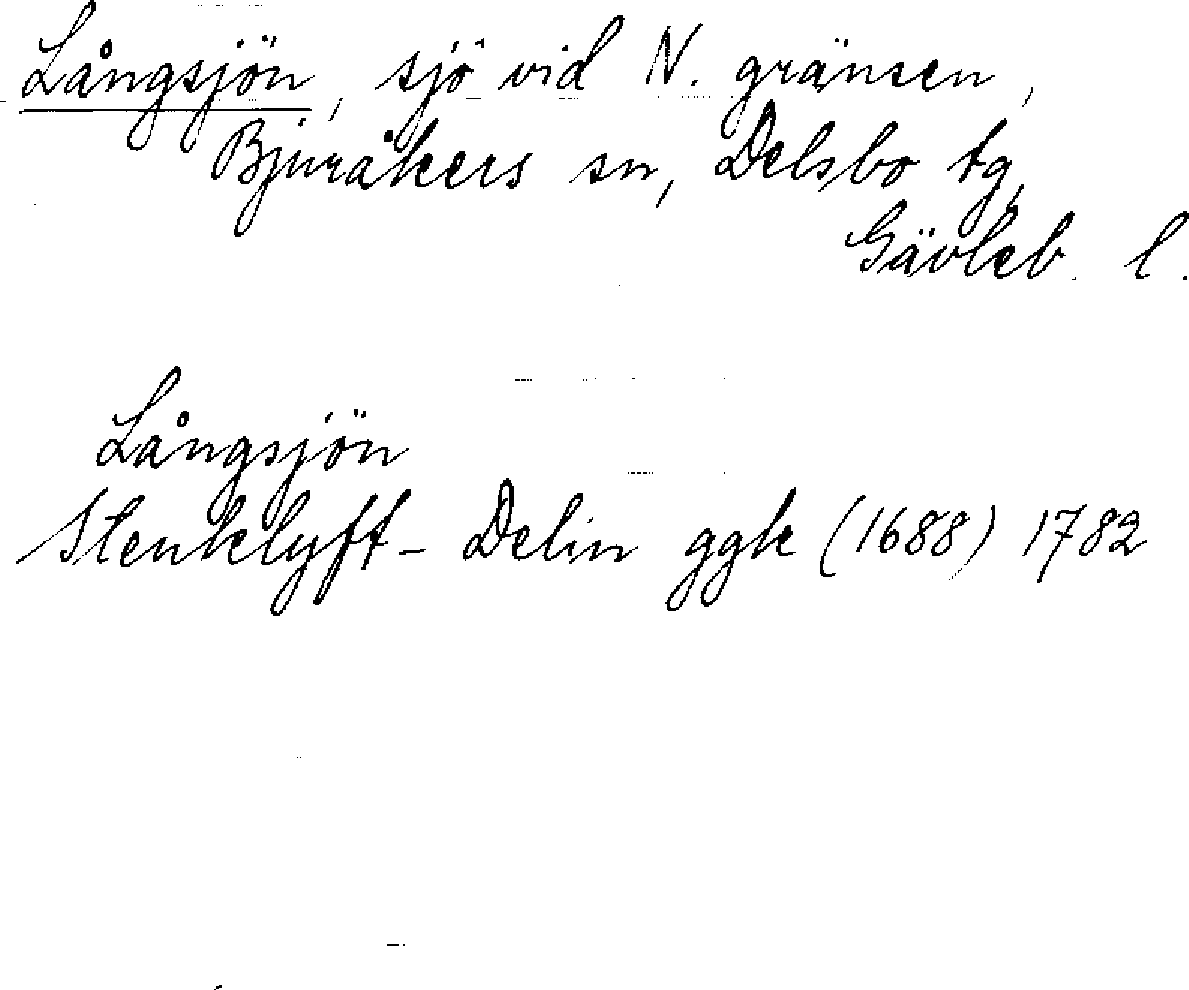 Långsjön, sjö vid N. gränsen,
Bjuråkers sn, Delsbo tg,
Gävleb. l.
Långsjön
Stenklyft - Delin ggk (1688) 1782